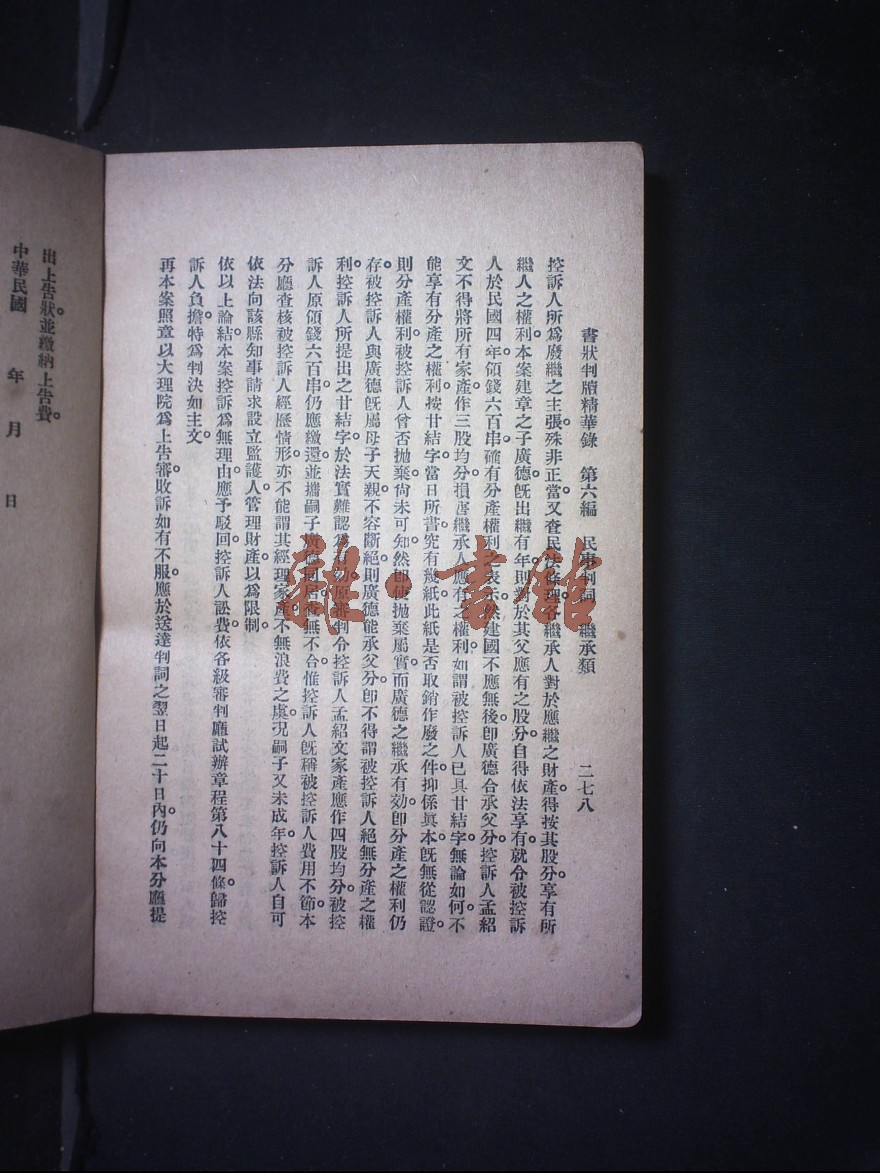 書狀判牘精華錄　第六編　民事判詞　繼承類　二七八
控訴人所爲廢繼之主張殊非正當。又查民法條理。各繼承人對於應繼之財產。得按其股分享有所
繼人之權利。本案建章之子廣德。旣出繼有年。則對於其父應有之股分。自得依法享有。就令被控訴
人於民國四年領錢六百串。確有分產權利之表示。然建國不應無後。卽廣德合承父分。控訴人孟紹
文不得將所有家產作三股均分。損害繼承人應有之權利。如謂被控訴人已具甘結字。無論如何。不
能享有分產之權利。按甘結字當日所書究有幾紙。此紙是否取銷作廢之件。抑係眞本。旣無從認證。
則分產權利被控訴人曾否拋棄。尙未可知。然卽使拋棄屬實。而廣德之繼承有効。卽分產之權利仍
存。被控訴人與廣德旣屬母子天親。不容斷絕。則廣德能承父分。卽不得謂被控訴人絕無分產之權
利。控訴人所提出之甘結字。於法實難認爲有効。原審判令控訴人孟紹文家產應作四股均分。被控
訴人原領錢六百串。仍應繳還。並攜嗣子廣德同居。查無不合。惟控訴人旣稱被控訴人費用不節。本
分廳查核被控訴人經歷情形。亦不能謂其經理家產。不無浪費之虞。况嗣子又未成年。控訴人自可
依法向該縣知事請求設立監護人管理財產。以爲限制。
依以上論結。本案控訴爲無理由。應予駁回。控訴人訟費依各級審判廳試辦章程第八十四條。歸控
訴人負擔。特爲判决如主文。
再本案照章以大理院爲上告審。敗訴如有不服。應於送達判詞之翌日起二十日內。仍向本分廳提
出上告狀。並繳納上告費。
中華民國　年　月　日
雜·書館